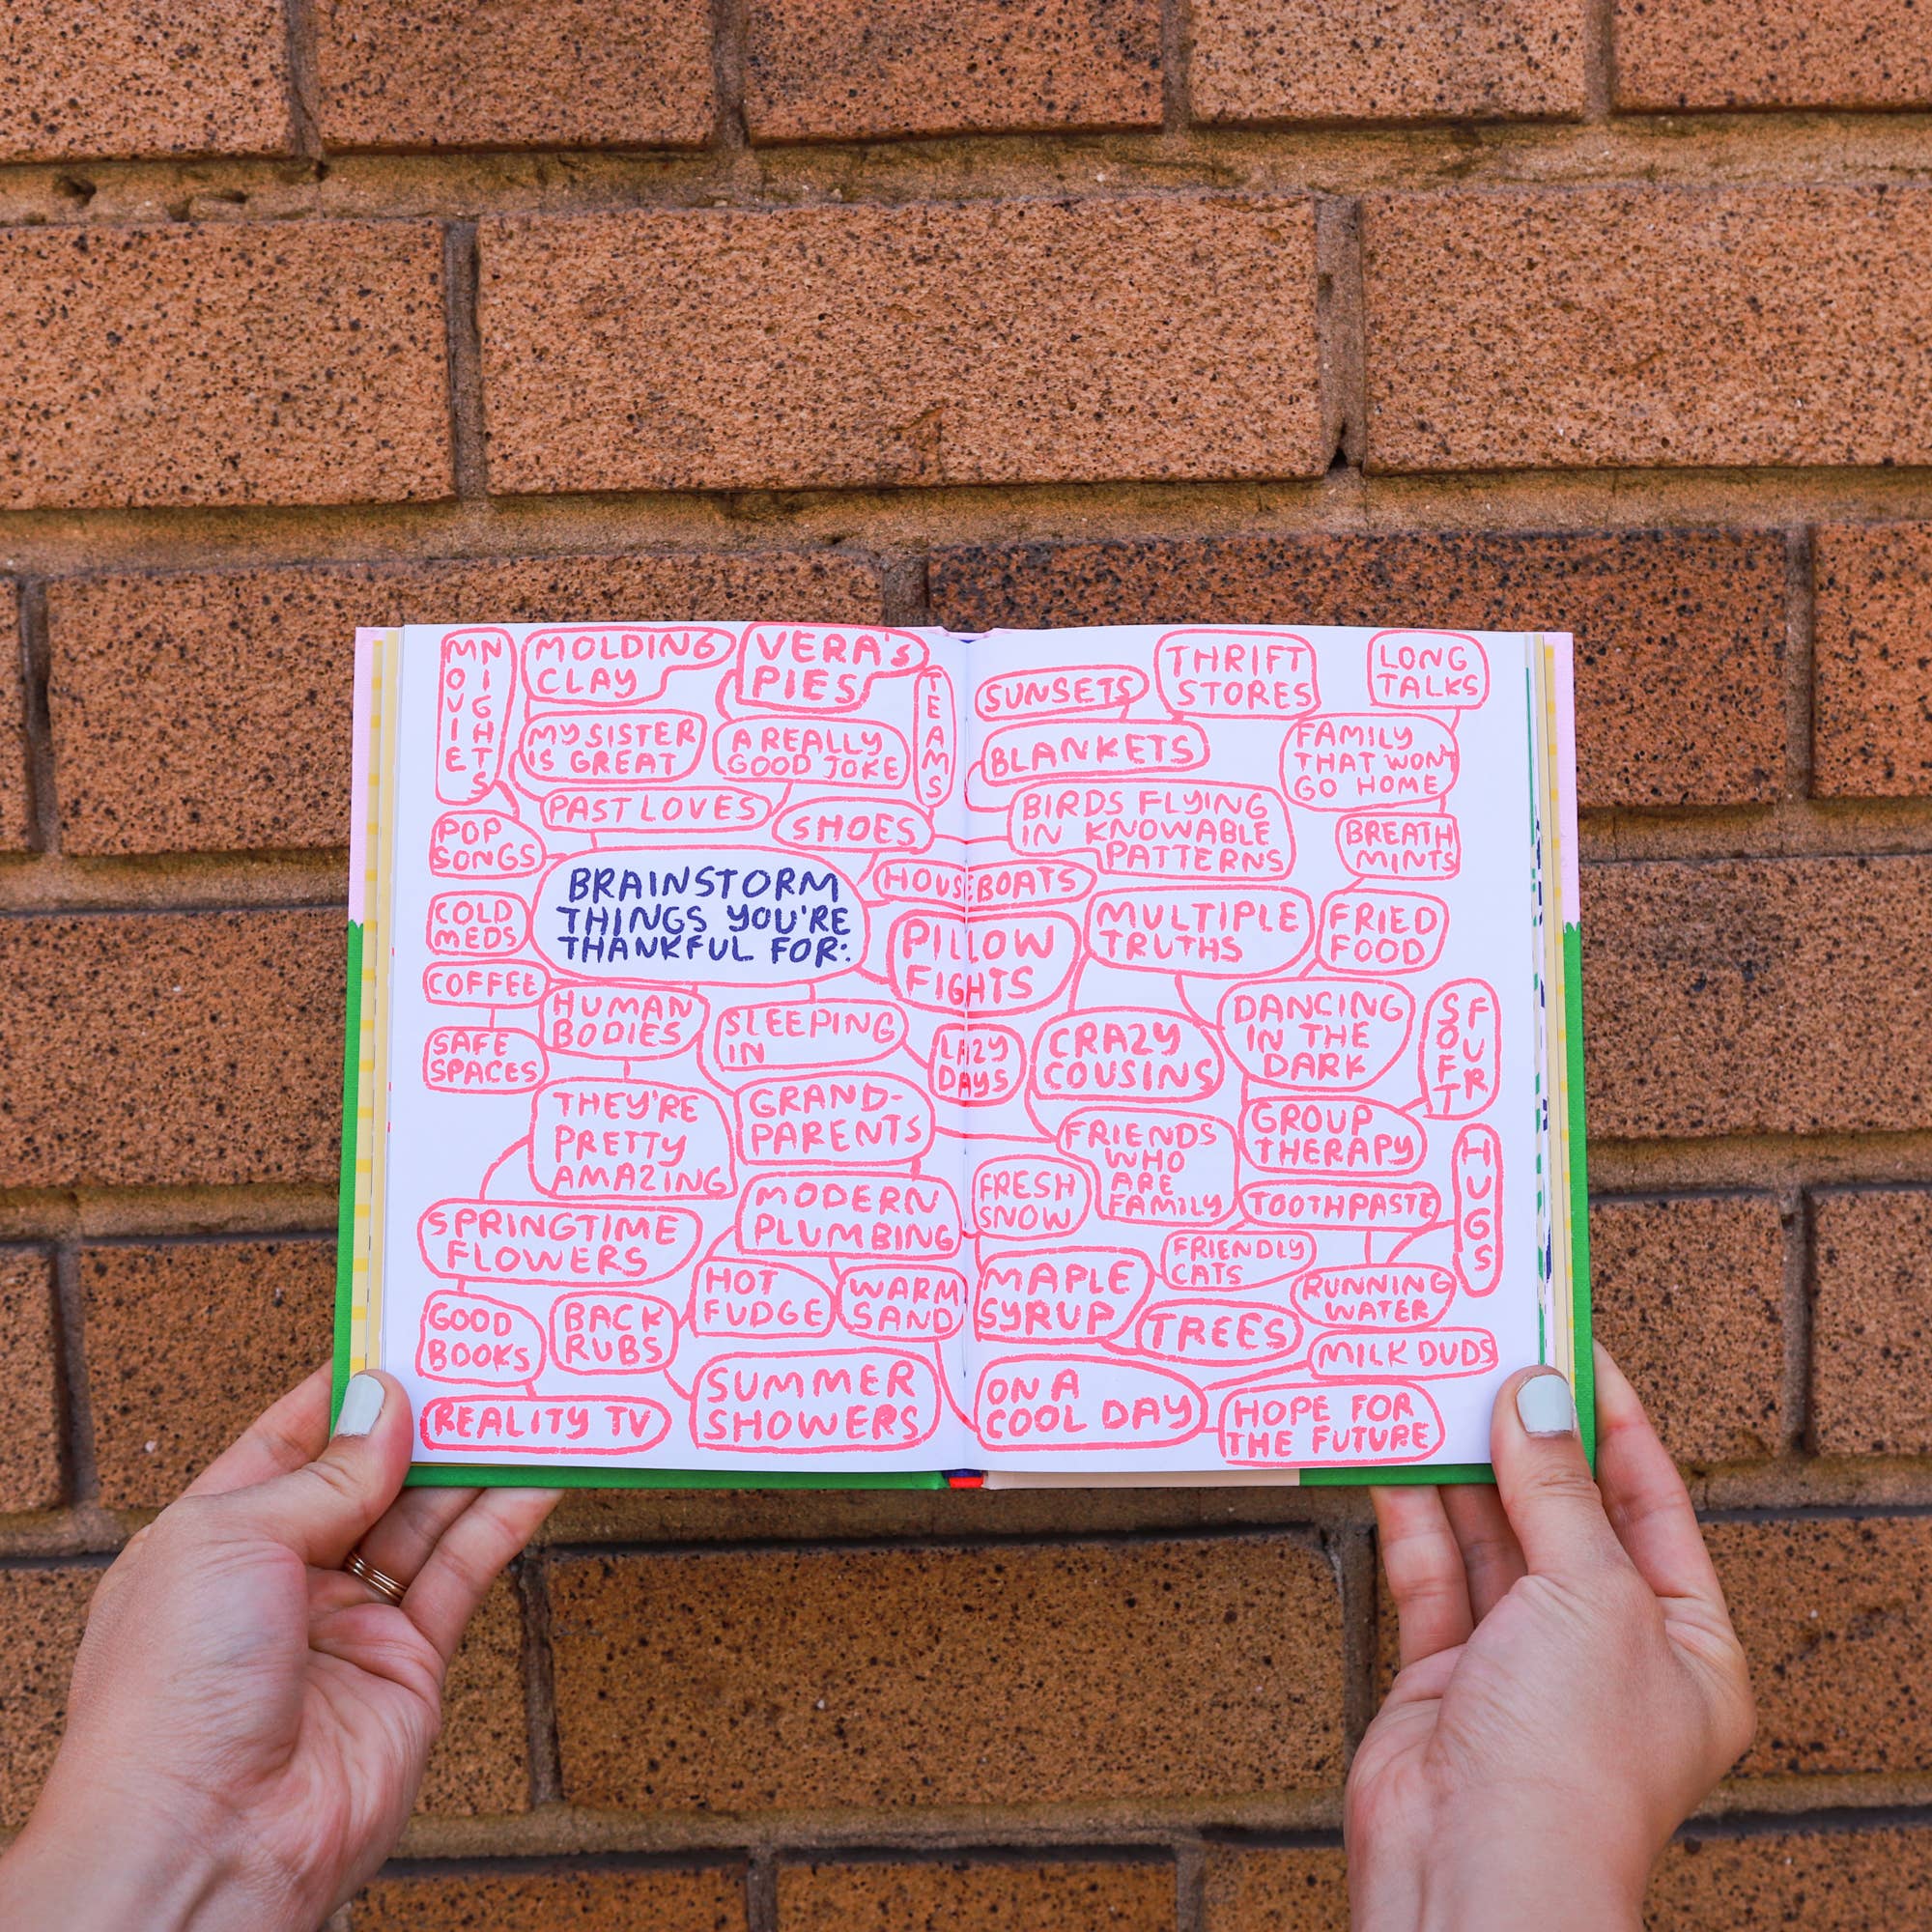 MOVIE
NIGHTS
MOLDING
CLAY
VERA'S
PIES
TEAMS
MY SISTER
IS GREAT
A REALLY
GOOD JOKE
PAST LOVES
SHOES
POP
SONGS
BRAINSTORM
THINGS YOU'RE
THANKFUL FOR:
HOUSEBOATS
COLD
MEDS
PILLOW
FIGHTS
COFFEE
HUMAN
BODIES
SLEEPING
IN
SAFE
SPACES
LAZY
DAYS
THEY'RE
PRETTY
AMAZING
GRAND-
PARENTS
SPRINGTIME
FLOWERS
MODERN
PLUMBING
GOOD
BOOKS
BACK
RUBS
HOT
FUDGE
WARM
SAND
REALITY TV
SUMMER
SHOWERS
SUNSETS
THRIFT
STORES
LONG
TALKS
BLANKETS
FAMILY
THAT WON'T
GO HOME
BIRDS FLYING
IN KNOWABLE
PATTERNS
BREATH
MINTS
MULTIPLE
TRUTHS
FRIED
FOOD
CRAZY
COUSINS
DANCING
IN THE
DARK
SOFT
FUR
FRIENDS
WHO
ARE
FAMILY
GROUP
THERAPY
HUGS
FRESH
SNOW
TOOTHPASTE
FRIENDLY
CATS
MAPLE
SYRUP
RUNNING
WATER
TREES
MILK DUDS
ON A
COOL DAY
HOPE FOR
THE FUTURE